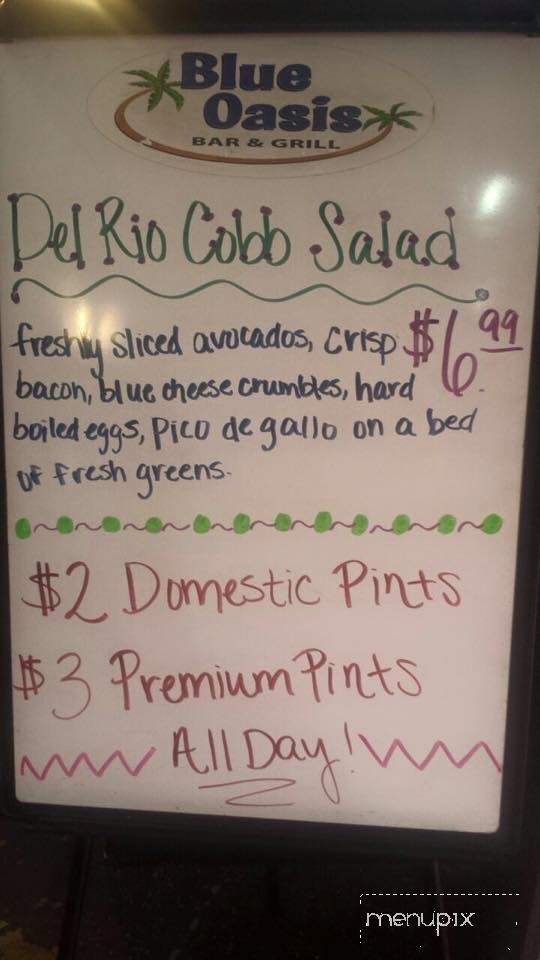 Blue
Oasis
BAR & GRILL
Del Rio Cobb Salad
freshly sliced avocados, crisp $6.99
bacon, blue cheese crumbles, hard
boiled eggs, pico de gallo on a bed
of fresh greens.
$2 Domestic Pints
$3 Premium Pints
All Day!
menupix